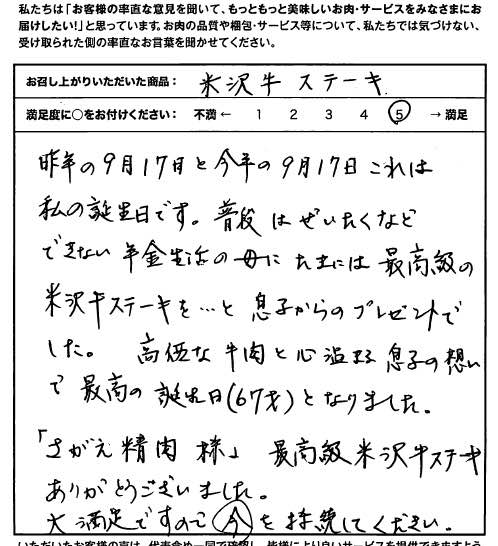 私たちは「お客様の率直な意見を聞いて、もっともっと美味しいお肉・サービスをみなさまにお
届けしたい!」と思っています。お肉の品質や梱包・サービス等について、私たちでは気づけない、
受け取られた側の率直なお言葉を聞かせてください。
お召し上がりいただいた商品: 米沢牛 ステーキ
満足度に○をお付けください: 不満 ← 1 2 3 4 5 → 満足
昨年の9月17日と今年の9月17日 これは
私の誕生日です。普段はぜいたくなど
できない年金生活の母にたまには最高級の
米沢牛ステーキを…と息子からのプレゼントで
した。 高価な牛肉と心温まる息子の想い
で最高の誕生日(67才)となりました。
「さがえ精肉様」 最高級米沢牛ステーキ
ありがとうございました。
大満足ですので 今 を持続してください。
いただいたお客様の声は、代表含め一同で確認し、皆様により良いサービスを提供できますよう